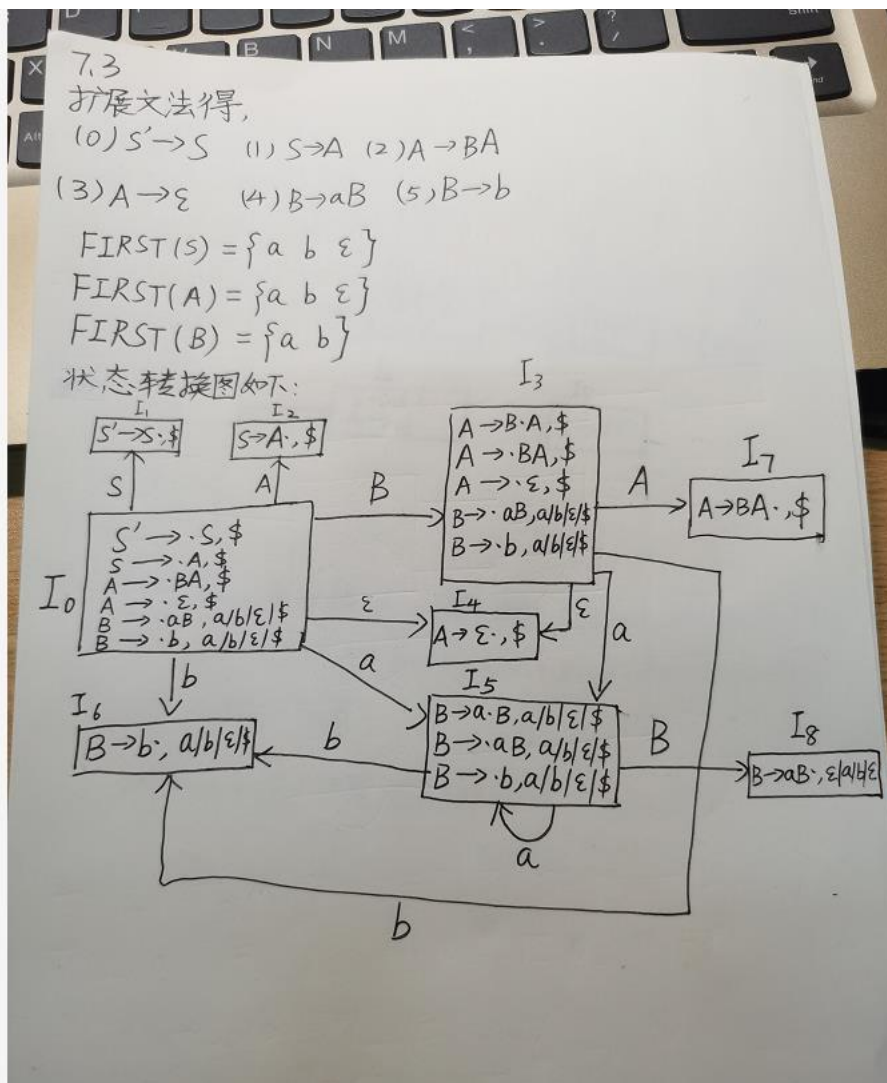 D
Shift
X
B
N
M
<
,
>
.
?
/
Alt
7.3
扩展文法得,
(0) S'→S (1) S→A (2) A→BA
(3) A→ε (4) B→aB (5) B→b
FIRST(S) = {a b ε}
FIRST(A) = {a b ε}
FIRST(B) = {a b}
状态转换图如下:
I1
S'→S·,$
I2
S→A·,$
I3
A→B·A,$
A→·BA,$
A→·ε,$
B→·aB,a/b|ε|$
B→·b,a/b|ε|$
I7
A→BA·,$
S
A
B
A
I0
S'→·S,$
S→·A,$
A→·BA,$
A→·ε,$
B→·aB,a/b|ε|$
B→·b,a/b|ε|$
ε
I4
A→ε·,$
ε
a
a
b
I6
B→b·,a/b|ε|$
b
I5
B→a·B,a/b|ε|$
B→·aB,a/b|ε|$
B→·b,a/b|ε|$
B
I8
B→aB·,ε|a|b|ε
a
b